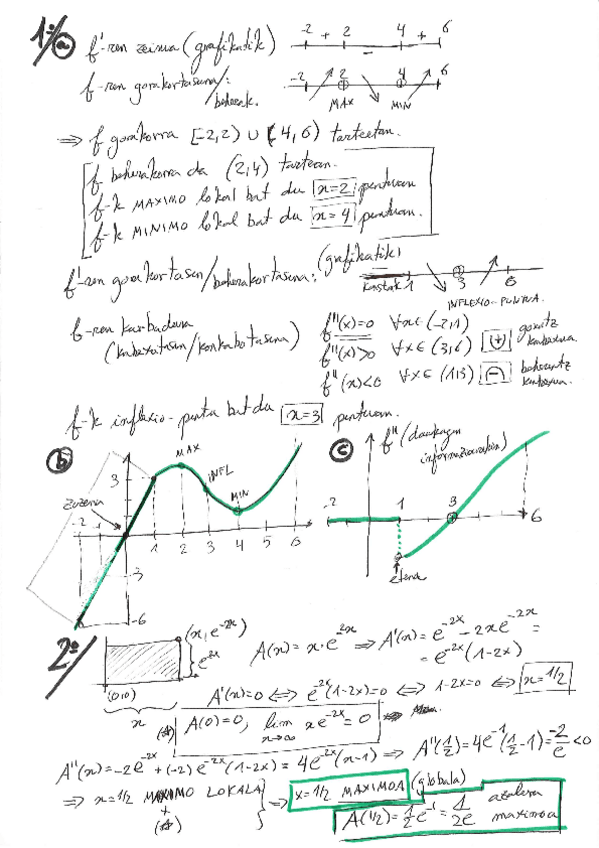 1º/ a f'-ren zeinua (grafikatik) -2 + 2 - 4 + 6
f-ren gorakortasuna/beherak.: -2 2 4 6
MAX MIN
⇒ f gorakorra [-2,2) ∪ (4,6) tarteetan.
f beherakorra da (2,4) tartean.
f-k MAXIMO lokal bat du x=2 puntuan
f-k MINIMO lokal bat du x=4 puntuan.
f'-ren gorakortasun/beherakortasuna: (grafikatik) 1 3 6
INFLEXIO-PUNTUA.
f-ren kurbadura
(kurbatasun/konkabotasuna)
f''(x)=0 ∀x∈(-2,1)
f''(x)>0 ∀x∈(3,6) gorantz
f''(x)<0 ∀x∈(1,3) beherantz
f-k inflexio-puntu bat du x=3 puntuan.
b MAX INFL MIN
zuzena
3 -2 1 2 3 4 5 6 -3 -6
c f'' (daukagun informazioarekin)
-2 1 3 6
etena
2º/ (x, e^{-2x})
e^{-2x}
(0,0) x
A(x) = x·e^{-2x} ⇒ A'(x) = e^{-2x} - 2xe^{-2x} =
= e^{-2x}(1-2x)
A'(x)=0 ⇔ e^{-2x}(1-2x)=0 ⇔ 1-2x=0 ⇔ x=1/2
(*) A(0)=0, lim x→∞ xe^{-2x}=0
A''(x) = -2e^{-2x} + (-2)e^{-2x}(1-2x) = 4e^{-2x}(x-1) ⇒ A''(1/2) = 4e^{-1}(1/2-1) = -2/e < 0
⇒ x=1/2 MAXIMO LOKALA + (*) } ⇒ x=1/2 MAXIMOA (globala)
A(1/2) = 1/2 e^{-1} = 1/2e azalera maximoa